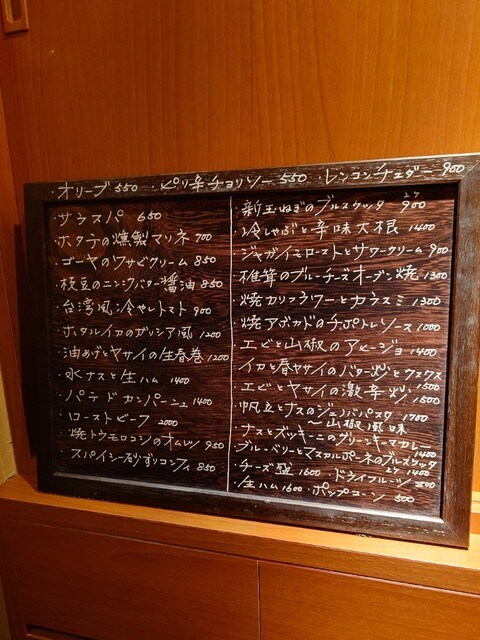 ・オリーブ 550 ・ピリ辛チョリソー 550 ・レンコンチェダー 900
・サラスパ 650
・ホタテの燻製マリネ 700
・ゴーヤのワサビクリーム 850
・枝豆のニンニクバター醤油 850
・台湾風冷やしトマト 900
・ホタルイカのガリシア風 1200
・油あげとヤサイの生春巻 1200
・水ナスと生ハム 1400
・パテドカンパーニュ 1400
・ローストビーフ 2000
・焼トウモロコシのオムレツ 950
・スパイシー砂ずりコンフィ 850
・新玉ねぎのブルスケッタ 900
・冷しゃぶと辛味大根 1400
・ジャガイモローストとサワークリーム 900
・椎茸のブルーチーズオーブン焼 1300
・焼カリフラワーとカラスミ 1300
・焼アボカドのチポトレソース 1000
・エビと山椒のアヒージョ 1400
・イカと春ヤサイのバター炒とクスクス 1500
・エビとヤサイの激辛炒 1500
・帆立とナスのジェノバパスタ 1700
〜山椒風味
・ナスとズッキーニのグリーンキーマカレー 1400
・ブルーベリーとマスカルポーネのブルスケッタ 1400
・チーズ盛 1600 ドライフルーツ 800
・生ハム 1600 ・ポップコーン 500